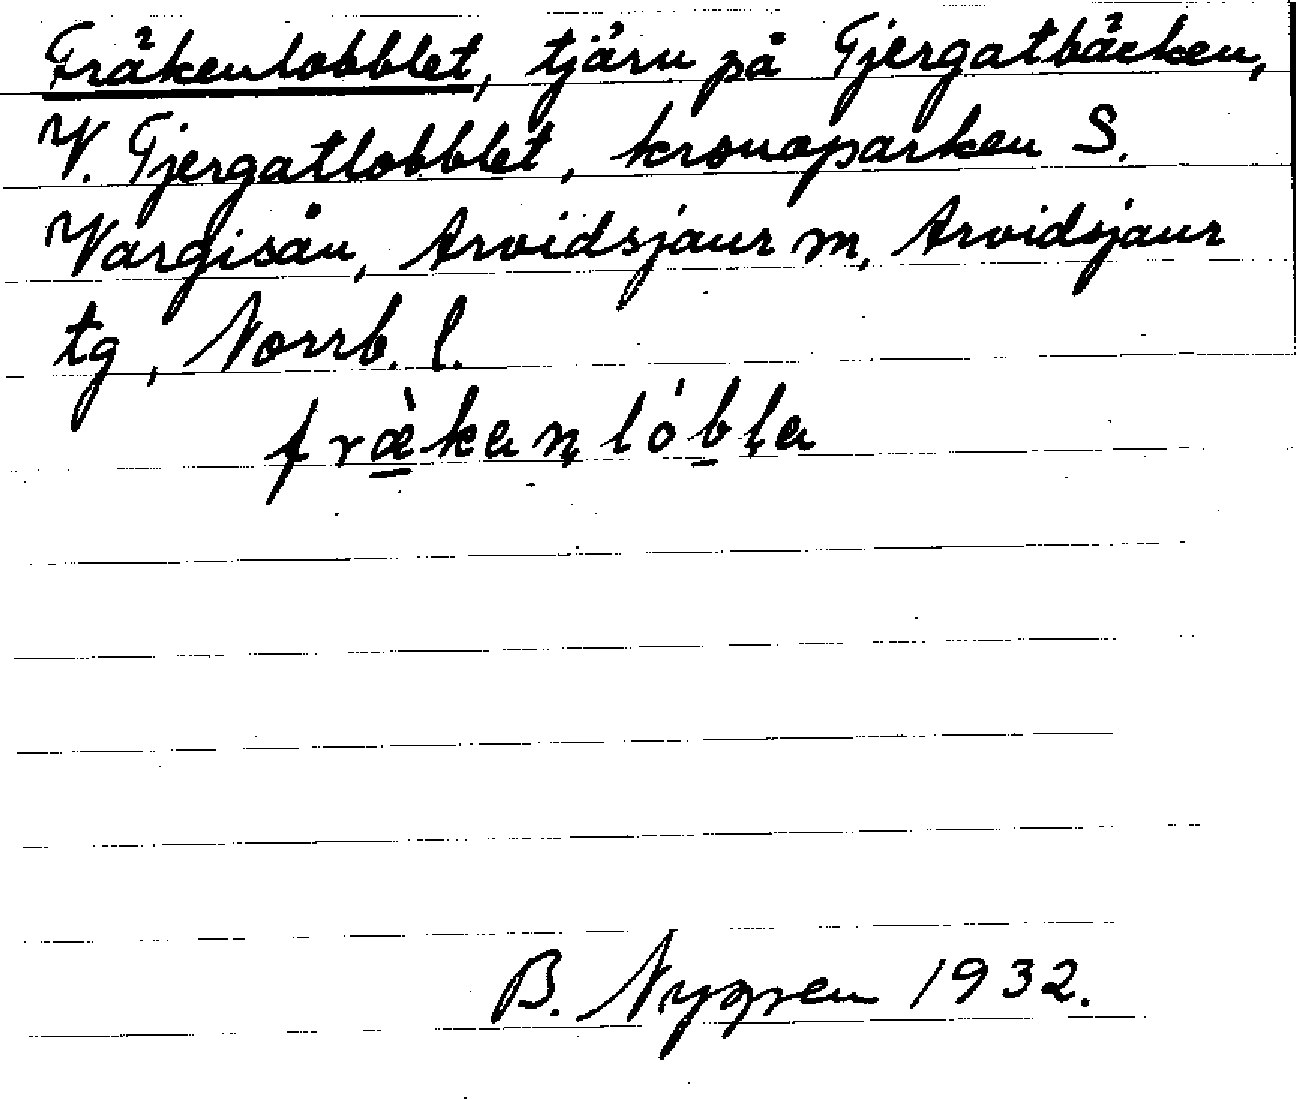 Fräkenlobblet, tjärn på Tjergatbäcken,
V. Tjergatlobblet, kronoparken S.
Vargisån, Arvidsjaur m, Arvidsjaur
tg, Norrb. l.
fræ̀kenlóbḷa
B. Nygren 1932.